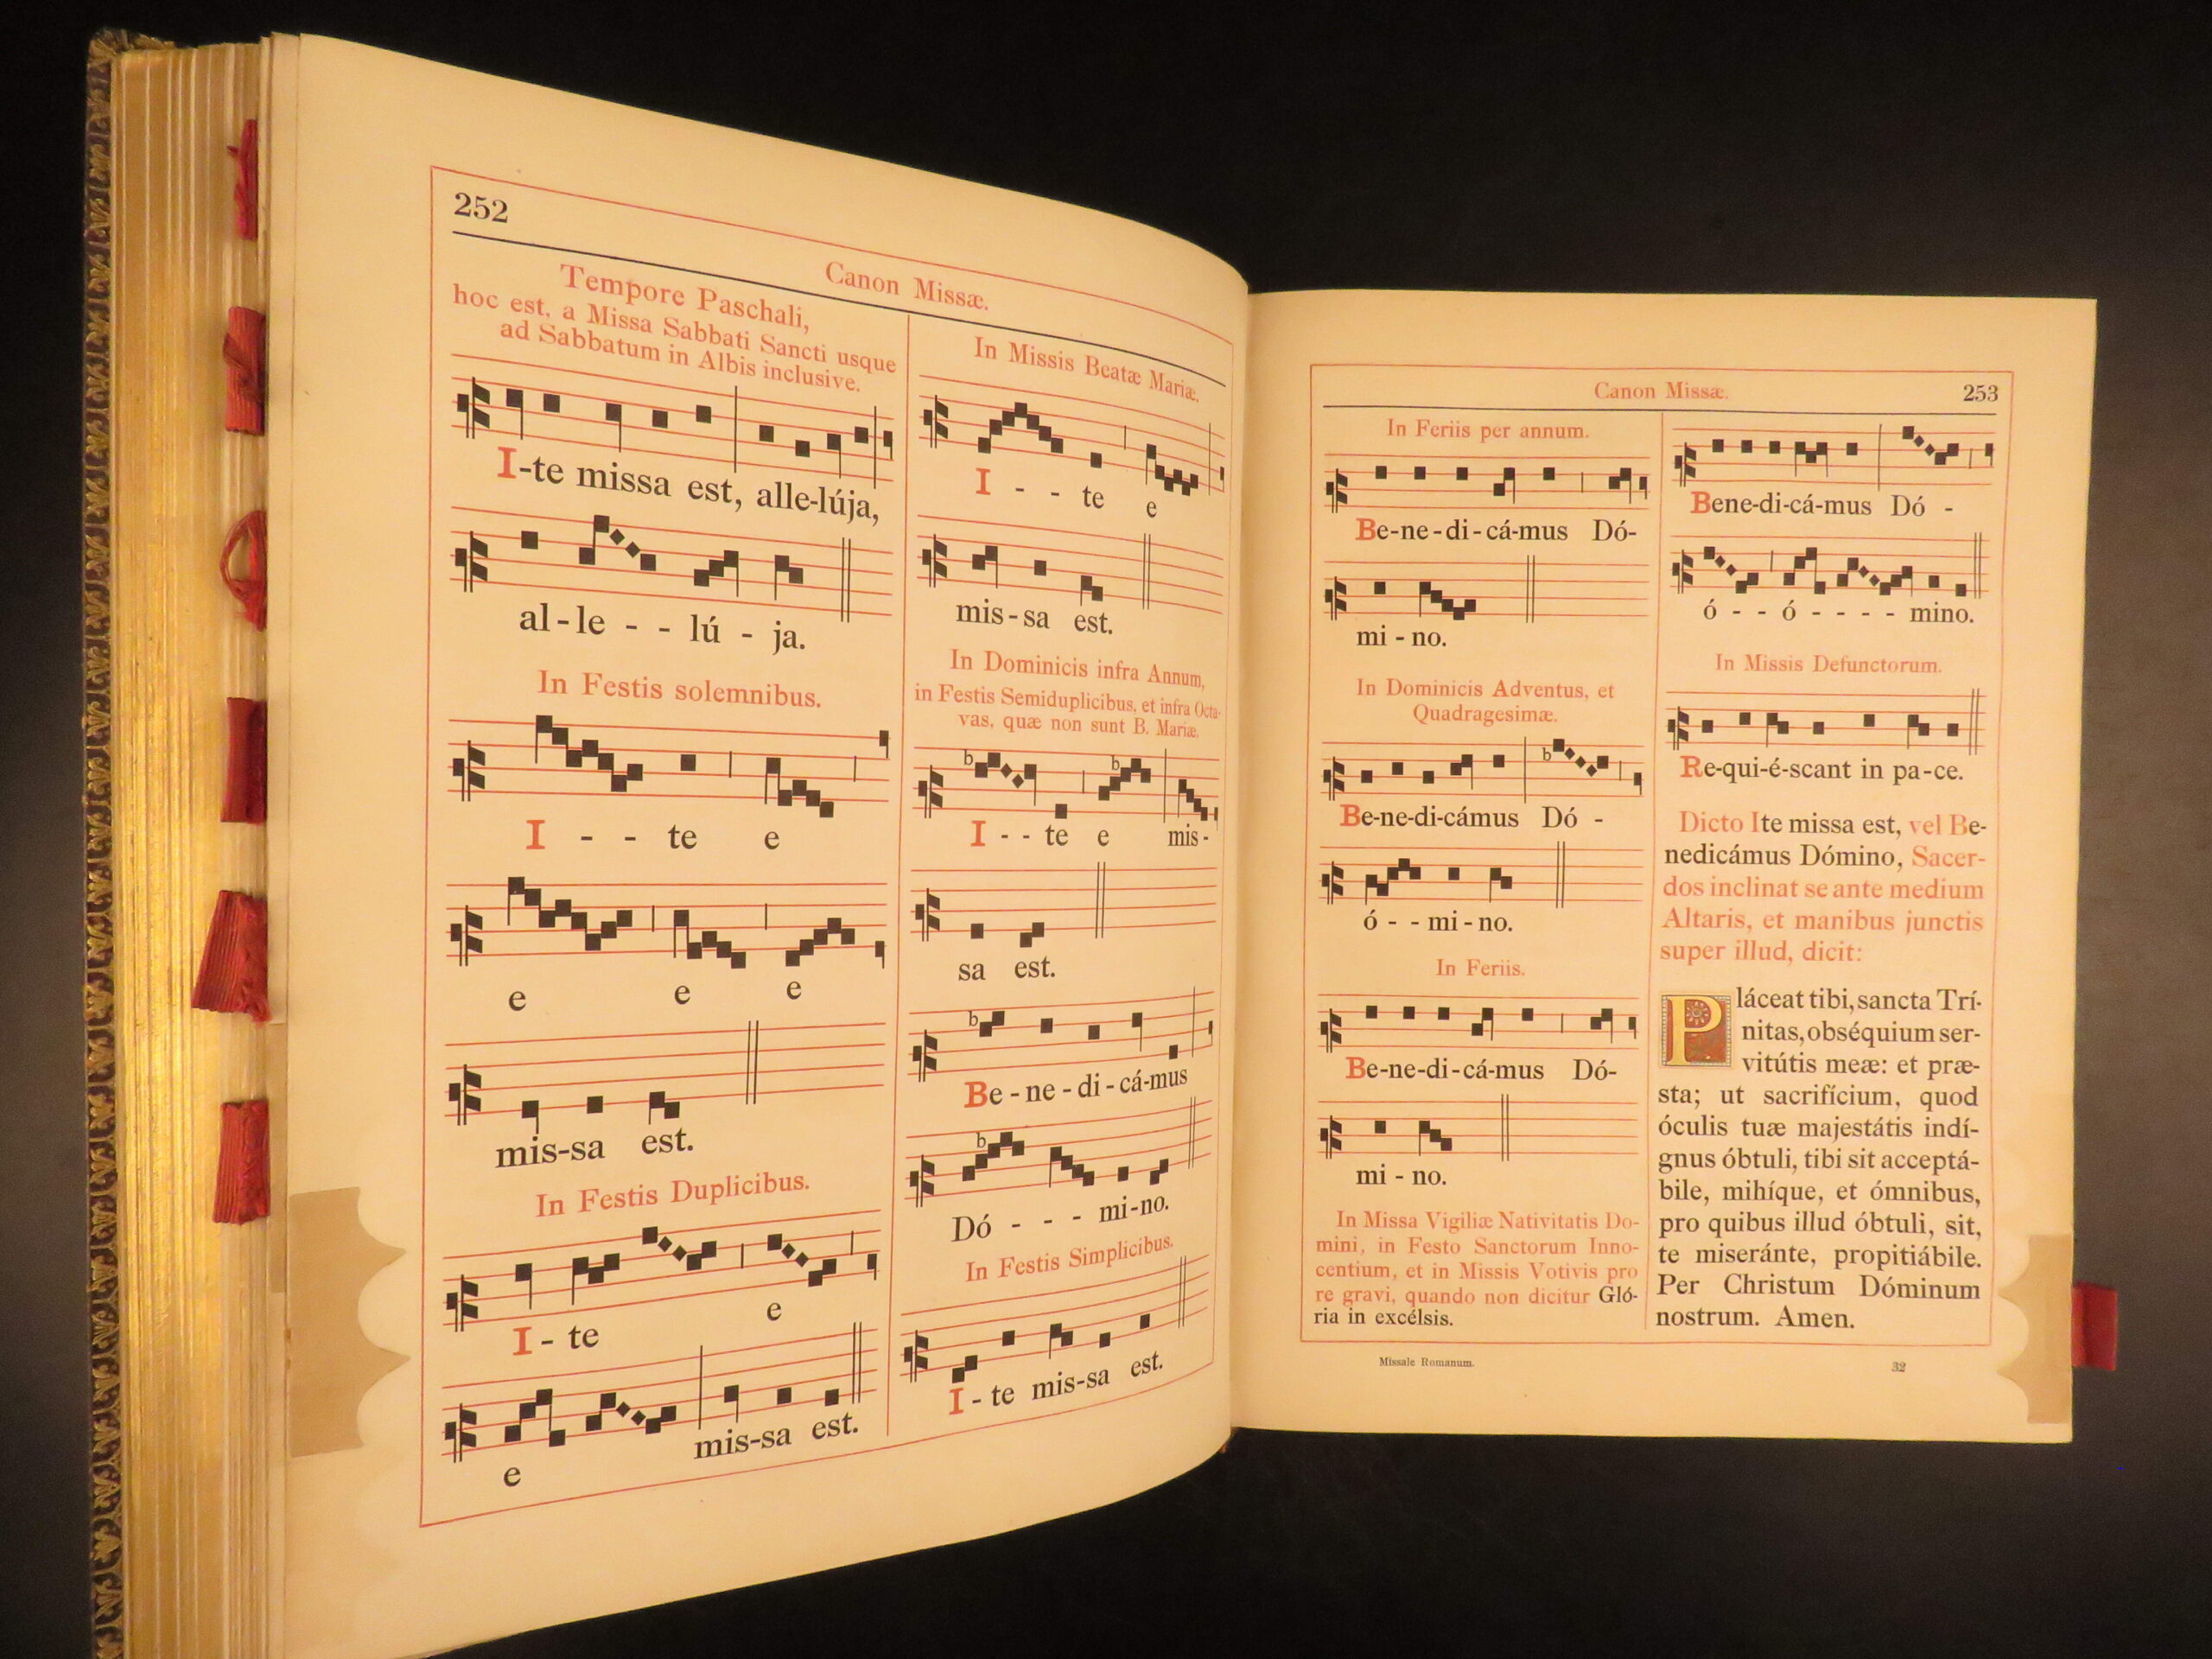 252
Canon Missæ.
Tempore Paschali,
hoc est, a Missa Sabbati Sancti usque
ad Sabbatum in Albis inclusive.
I-te missa est, alle-lúja,
al-le - - lú - ja.
In Festis solemnibus.
I - - te e
e e e
mis-sa est.
In Festis Duplicibus.
I-te e
e mis-sa est.
In Missis Beatæ Mariæ.
I - - te e
mis-sa est.
In Dominicis infra Annum,
in Festis Semiduplicibus, et infra Octa-
vas, quæ non sunt B. Mariæ.
I - - te e mis-
sa est.
Be-ne-di-cá-mus
Dó - - - mi-no.
In Festis Simplicibus.
I-te mis-sa est.
Canon Missæ.
253
In Feriis per annum.
Be-ne-di-cá-mus Dó-
mi-no.
In Dominicis Adventus, et
Quadragesimæ.
Be-ne-di-cámus Dó -
ó - - mi-no.
In Feriis.
Be-ne-di-cá-mus Dó-
mi-no.
In Missa Vigiliæ Nativitatis Do-
mini, in Festo Sanctorum Inno-
centium, et in Missis Votivis pro
re gravi, quando non dicitur Gló-
ria in excélsis.
Bene-di-cá-mus Dó -
ó - - ó - - - - mino.
In Missis Defunctorum.
Re-qui-é-scant in pa-ce.
Dicto Ite missa est, vel Be-
nedicámus Dómino, Sacer-
dos inclinat se ante medium
Altaris, et manibus junctis
super illud, dicit:
Pláceat tibi, sancta Trí-
nitas, obséquium ser-
vitútis meæ: et præ-
sta; ut sacrifícium, quod
óculis tuæ majestátis indí-
gnus óbtuli, tibi sit acceptá-
bile, mihíque, et ómnibus,
pro quibus illud óbtuli, sit,
te miseránte, propitiábile.
Per Christum Dóminum
nostrum. Amen.
Missale Romanum.
32